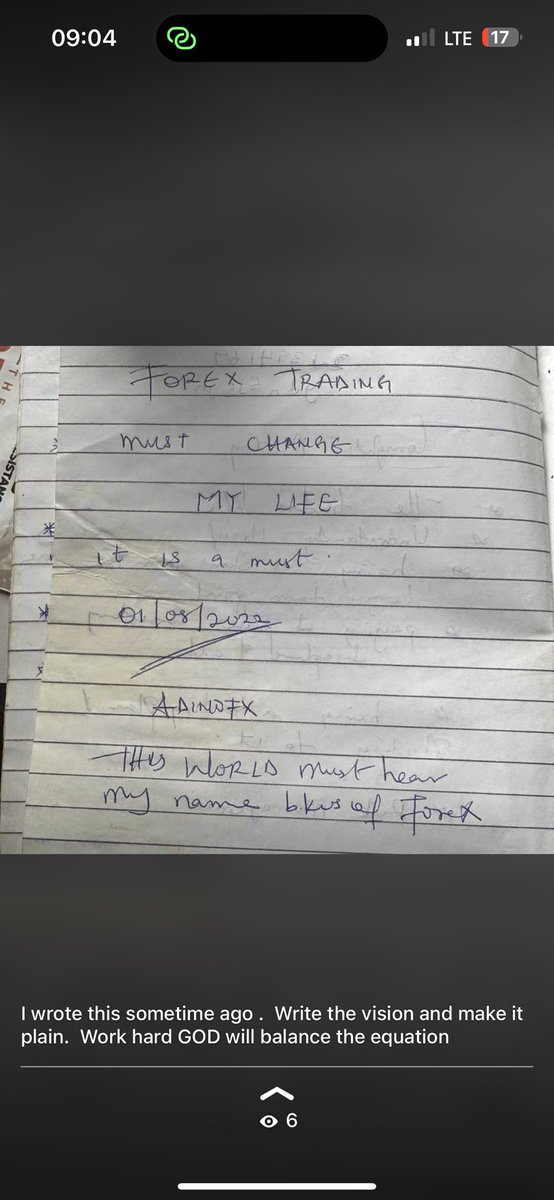 09:04
LTE 17
THE
SISTANC
FOREX TRADING
must CHANGE
MY LIFE
it is a must.
01/08/2022
ADINOFX
THIS WORLD must hear
my name bkus of Forex
I wrote this sometime ago . Write the vision and make it
plain. Work hard GOD will balance the equation
6